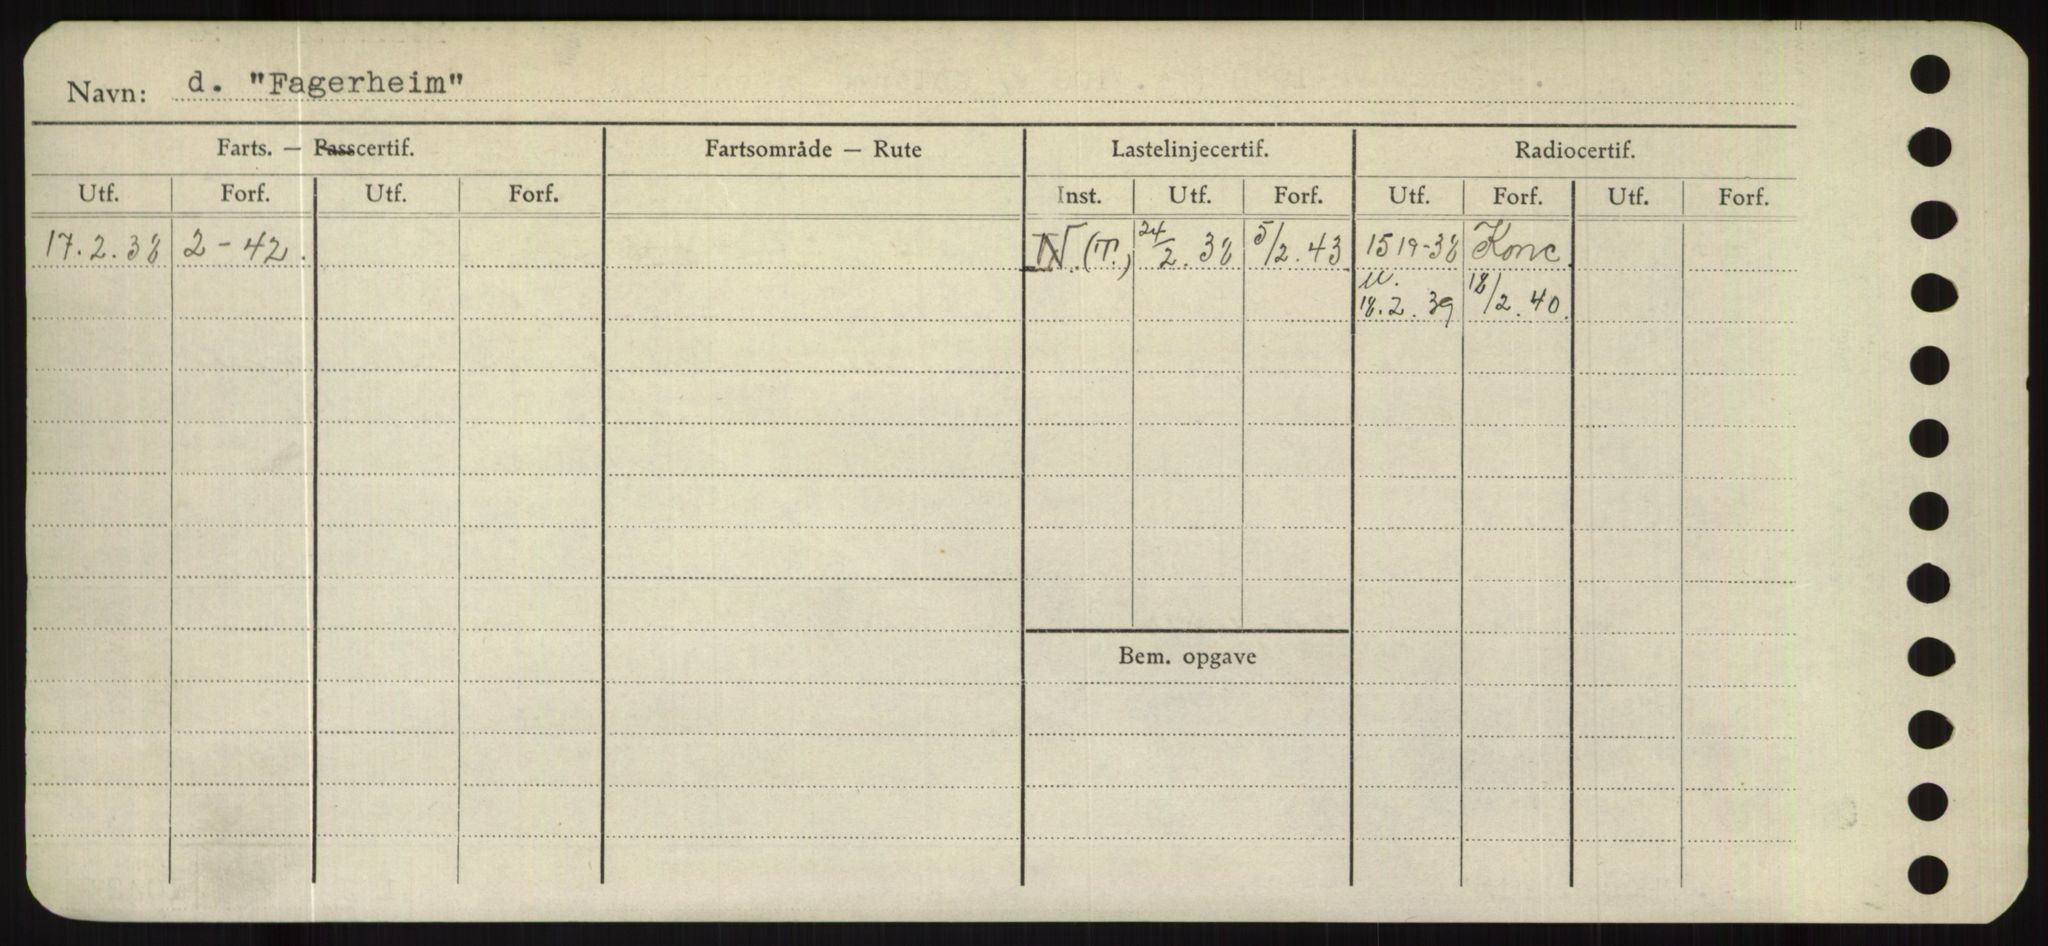 Navn: d. "Fagerheim"
Farts. — Passcertif. Fartsområde — Rute Lastelinjecertif. Radiocertif.
Utf. Forf. Utf. Forf. Inst. Utf. Forf. Utf. Forf. Utf. Forf.
17.2.38 2-42. N. (T.) 24/2.38 5/2.43 1519-38 Konc.
18.2.39 18/2.40.
Bem. opgave